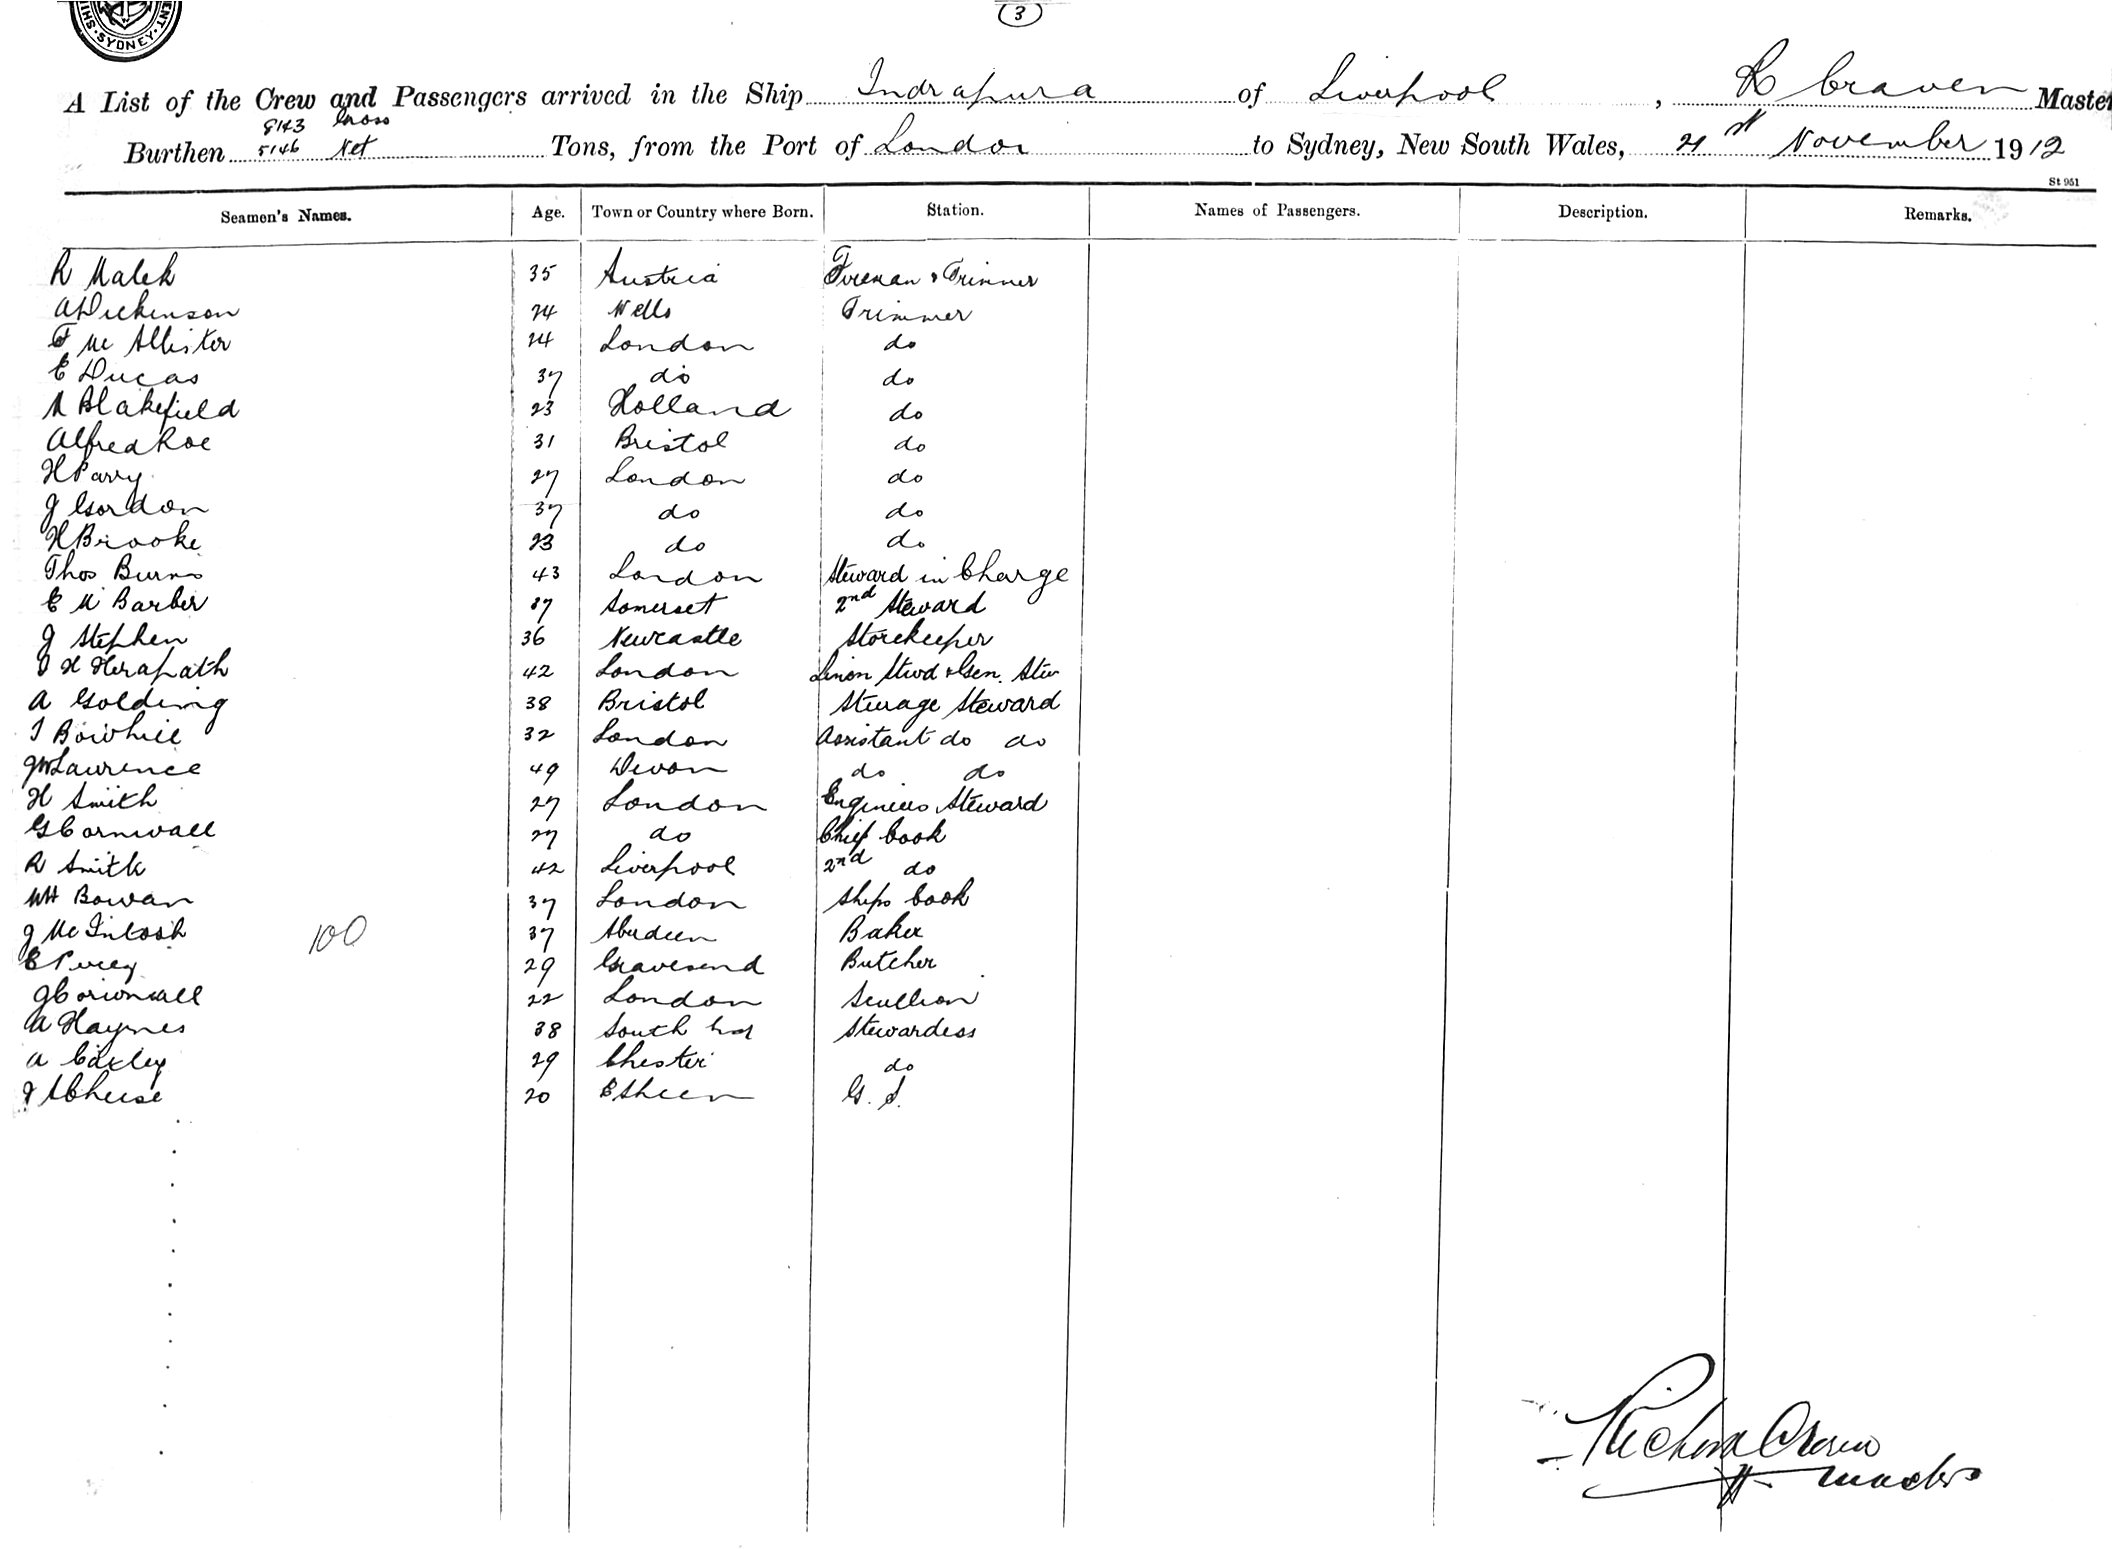 SYDNEY
3
A List of the Crew and Passengers arrived in the Ship Indrapura of Liverpool, R Craven Master
Burthen 8143 Gross 5146 Net Tons, from the Port of London to Sydney, New South Wales, 21st November 1912
St 951
Seamen's Names. Age. Town or Country where Born. Station. Names of Passengers. Description. Remarks.
R Malek 35 Austria Fireman & Trimmer
A Dickinson 24 Wells Trimmer
F Mc Allister 24 London do
E Ducas 37 do do
A Blakefield 23 Holland do
Alfred Roe 31 Bristol do
H Parry 27 London do
J Gordon 37 do do
H Brooke 23 do do
Thos Burns 43 London Steward in Charge
E M Barber 37 Somerset 2nd Steward
J Stephen 36 Newcastle Storekeeper
H Herapath 42 London Linen Stwd & Gen. Stw
A Golding 38 Bristol Sturage Steward
T Bowhill 32 London Assistant do do
JW Laurence 49 Devon do do
H Smith 27 London Engineers Steward
G Cornwall 27 do Chief Cook
R Smith 42 Liverpool 2nd do
WH Bowan 37 London Ships Cook
J Mc Intosh 100 37 Aberdeen Baker
E Percy 29 Gravesend Butcher
J Cornwall 22 London Scullion
A Haynes 38 South Scullion Stewardess
A Caxley 29 Chester do
J A Cheese 20 E Sheen G. S.
Richard Craven
Master